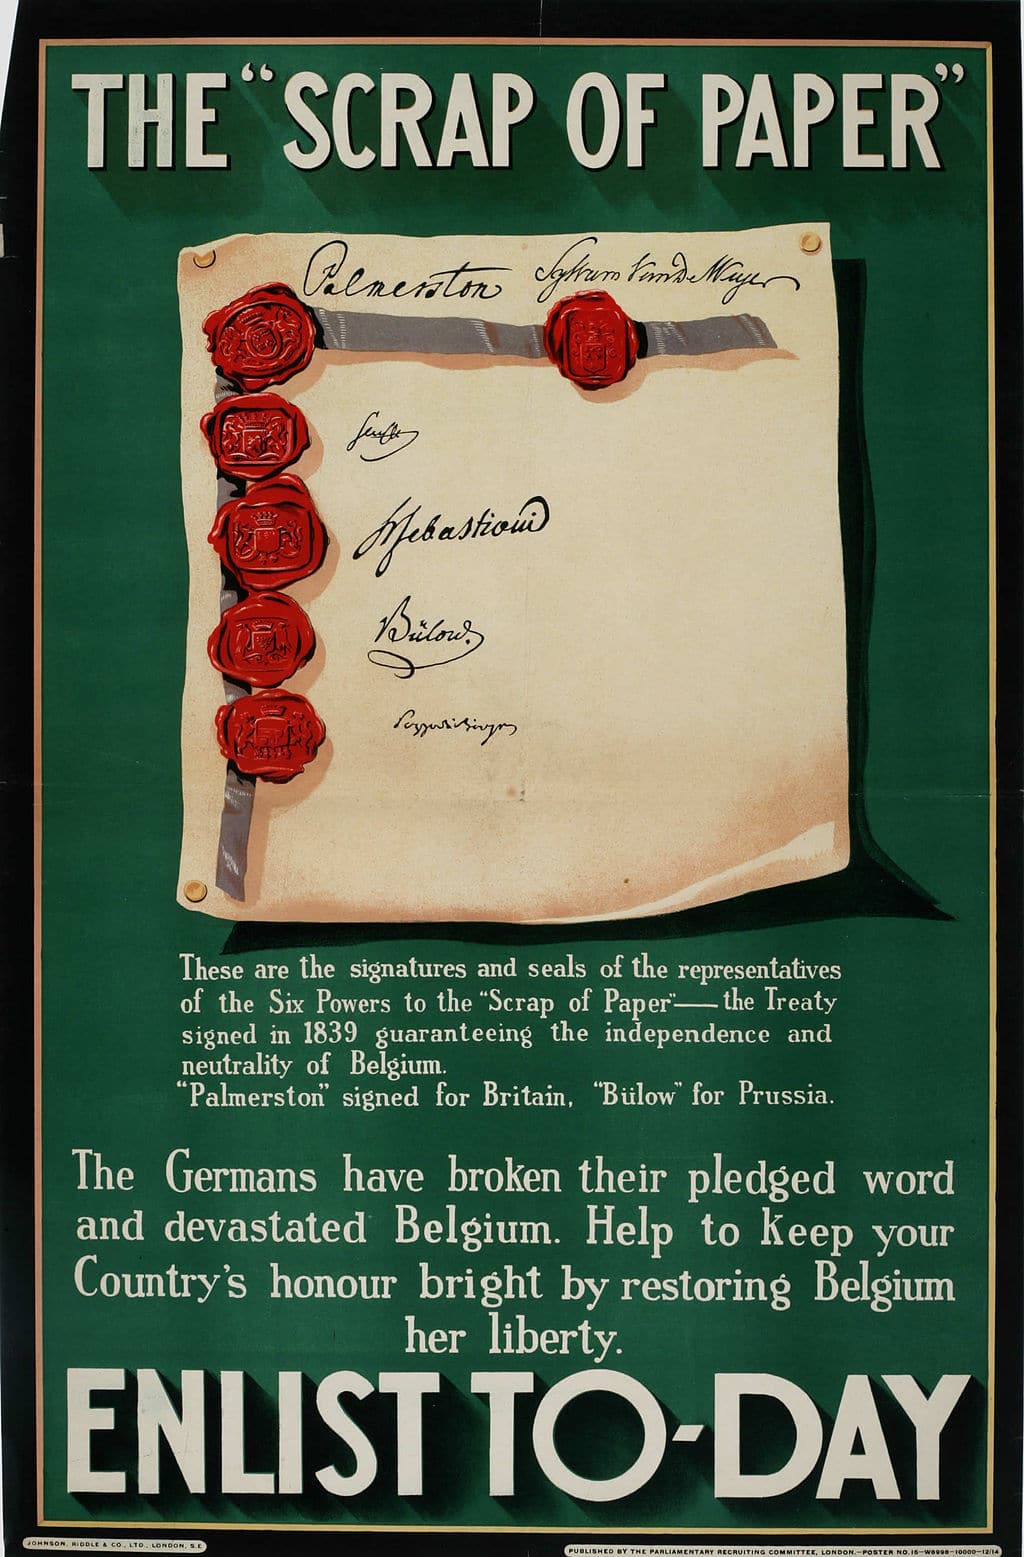 THE "SCRAP OF PAPER"
Palmerston Sylvain Van de Weyer
Senfft
H Sebastiani
Bülow.
Pozzo di Borgo
These are the signatures and seals of the representatives
of the Six Powers to the "Scrap of Paper"—the Treaty
signed in 1839 guaranteeing the independence and
neutrality of Belgium.
"Palmerston" signed for Britain, "Bülow" for Prussia.
The Germans have broken their pledged word
and devastated Belgium. Help to keep your
Country's honour bright by restoring Belgium
her liberty.
ENLIST TO-DAY
JOHNSON, RIDDLE & CO., LTD., LONDON, S.E.
PUBLISHED BY THE PARLIAMENTARY RECRUITING COMMITTEE, LONDON.—POSTER NO. 15—W8998—10000—12/14